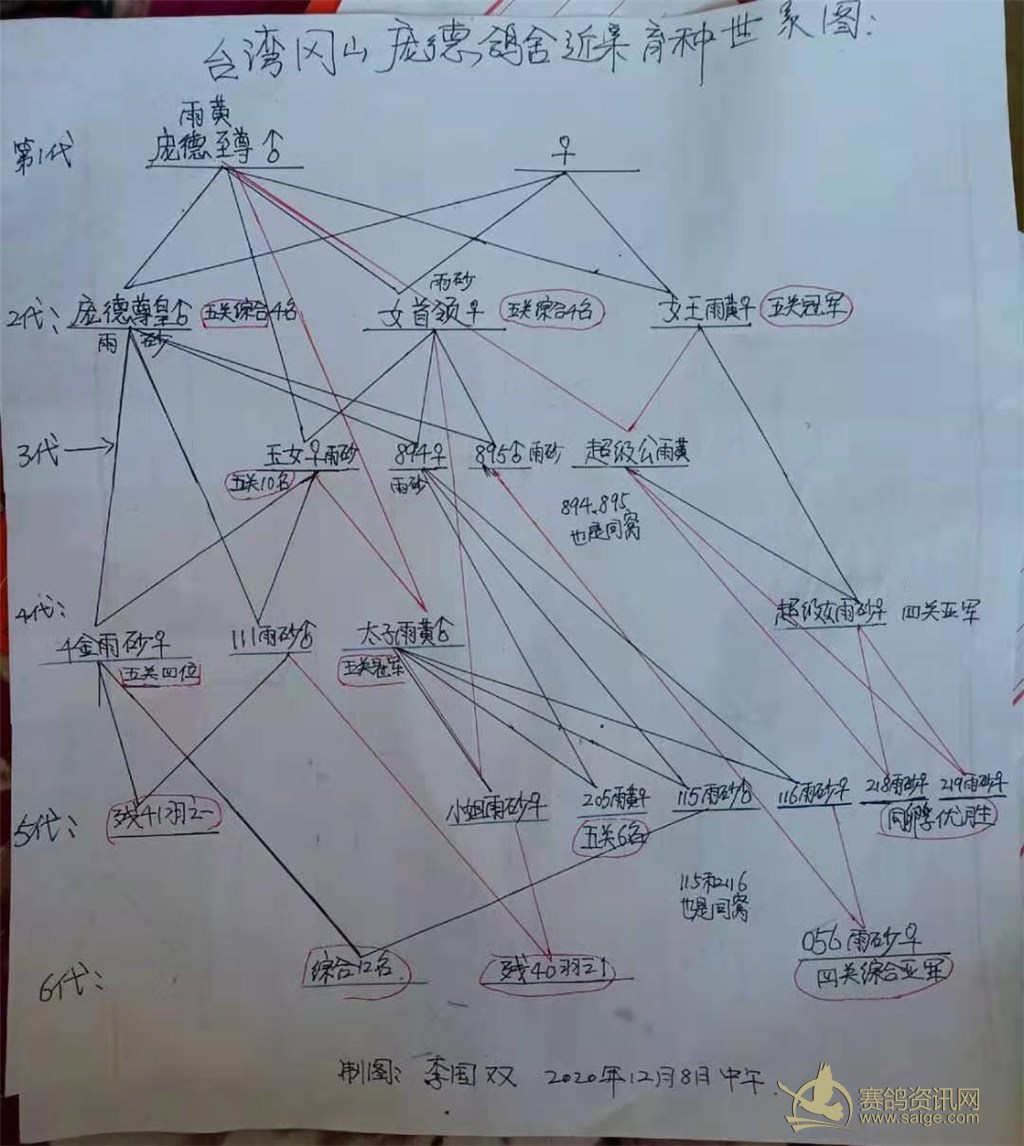 台湾冈山庞德鸽舍近亲育种世系图:
雨黄
第1代 庞德至尊♂ ♀
雨砂
2代: 庞德尊皇♂ 五关综合4名 女首领♀ 五关综合4名 女王雨黄♀ 五关冠军
雨砂
3代 玉女♀雨砂 894♀ 895♂雨砂 超级公雨黄
五关10名 雨砂
894.895
也是同窝
4代: 超级女雨砂♀ 四关亚军
4金雨砂♀ 111雨砂♂ 太子雨黄♂
五关四位 五关冠军
5代: 残41羽之一 小姐雨砂♀ 205雨黄♀ 115雨砂♂ 116雨砂♀ 218雨砂♀ 219雨砂♀
五关6名 同孵优胜
115和116
也是同窝
056雨砂♀
6代: 综合12名 残40羽之1 四关综合亚军
制图: 李国双 2020年12月8日中午.
赛鸽资讯网
www.saige.com